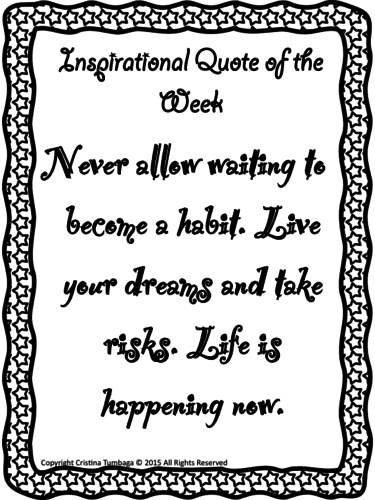 Inspirational Quote of the
Week
Never allow waiting to
become a habit. Live
your dreams and take
risks. Life is
happening now.
Copyright Cristina Tumbaga © 2015 All Rights Reserved